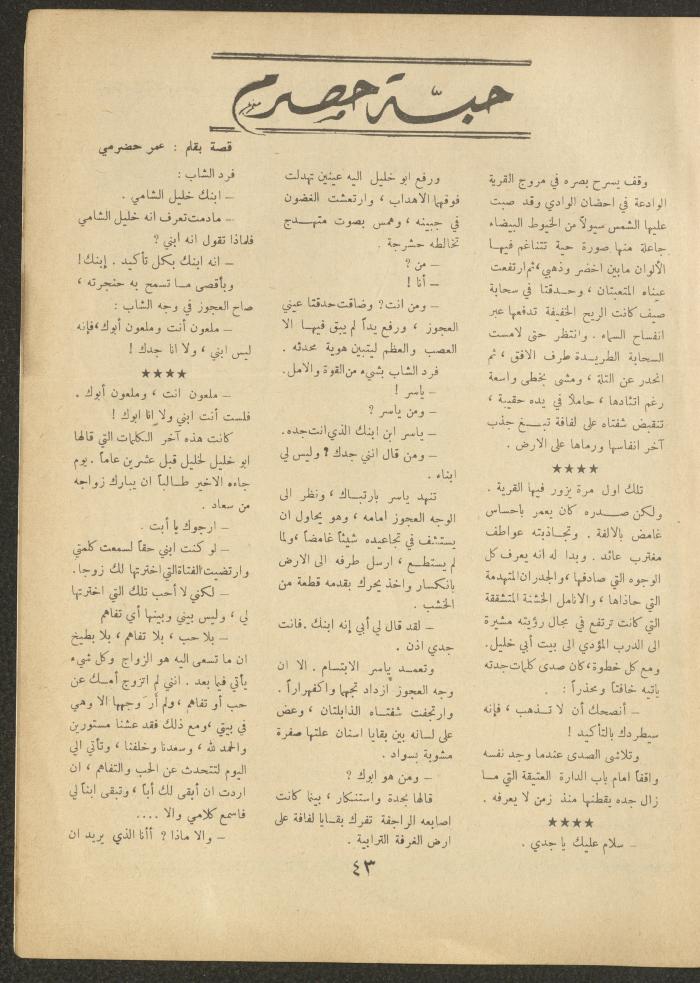 حبّة حصرم
قصة بقلم : عمر حضرمي
وقف يسرح بصره في مروج القرية
الوادعة في احضان الوادي وقد صبت
عليها الشمس سيولاً من الخيوط البيضاء
جاعلة منها صورة حية تتناغم فيهـا
الألوان مابين اخضر وذهبي،ثم ارتفعت
عيناه المتعبتان ، وحـدقتا في سحابة
صيف كانت الريح الخفيفة تدفعها عبر
انفساح السماء . وانتظر حتى لامست
السحابة الطريـدة طرف الافق ، ثم
انحدر عن التلة ، ومشى بخطى واسعة
رغم اتئادها ، حاملاً في يده حقيبة ،
تنقبض شفتاه على لفافة تبـغ جذب
آخر انفاسها ورماها على الارض .
★★★★
تلك اول مرة يزور فيها القرية .
ولكن صـدره كان يعمر باحساس
غامض بالالفة . وتجـاذبته عواطف
مغترب عائد . وبدا له انه يعرف كل
الوجوه التي صادفها ،والجدران المتهدمة
التي حاذاها ، والانامل الخشنة المتشققة
التي كانت ترتفع في مجال رؤيته مشيرة
الى الدرب المؤدي الى بيت أبي خليل.
ومع كل خطوة،كان صدى كلمات جدته
يأتيه خافتاً ومحذراً : .
ـ أنصحك أن لا تـذهب ، فإنه
سيطردك بالتأكيد !
وتلاشى الصدى عندما وجد نفسه
واقفاً امام باب الدارة العتيقة التي مـا
زال جده يقطنها منذ زمن لا يعرفه .
★★★★
ـ سلام عليك يا جدي .
ورفع ابو خليل اليه عينين تهدلت
فوقهما الاهداب ، وارتعشت الغضون
في جبينه ، وهمس بصوت متهــدج
تخالطه حشرجة .
ـ من ؟
ـ أنا !
ـ ومن انت? وضاقت حدقتا عيني
العجوز ، ورفع يداً لم يبق فيهـا الا
العصب والعظم ليتبين هوية محدثه .
فرد الشاب بشيء من القوة والامل.
ـ ياسر !
ـ ومن ياسر ?
ـ ياسر ابن ابنك الذي انت جده.
ـ ومن قال انني جدك ؟ وليس لي
ابناء .
تنهد ياسر بارتبـاك ، ونظر الى
الوجه العجوز امامه ، وهو يحاول ان
يستشف في تجاعيده شيئاً غامضاً ،ولما
لم يستطـع ، ارسل طرفه الى الارض
بانكسار واخذ يحرك بقدمه قطعة من
الخشب .
ـ لقد قال لي أبي إنه ابنك .فانت
جدي اذن .
وتعمـد ياسر الابتسام . الا ان
وجه العجوز ازداد تجهما واكفهراراً .
وارتجفت شفتـاه الذابلتان ، وعض
على لسانه بين بقايا اسنان علتها صفرة
مشوبة بسواد .
ـ ومن هو ابوك ?
قالها بحدة واستنـكار ، بينما كانت
اصابعه الراجفة تفرك بقـايا لفافة على
ارض الغرفة الترابية .
فرد الشاب :
ـ ابنك خليل الشامي .
ـ مادمت تعرف انه خليل الشامي
فلماذا تقول انه أبني ?
ـ انه ابنك بكل تأكيد . إبنك!
وبأقصى مـا تسمح به حنجرته ،
صاح العجوز في وجه الشاب :
ـ ملعون أنت وملعون أبوك،فإنه
ليس ابني ، ولا انا جدك !
★★★★
ـ ملعون انت ، وملعون أبوك .
فلست أنت ابني ولا انا ابوك !
كانت هذه آخر الـكلمات التي قالها
ابو خليل لخليل قبل عشرين عاماً . يوم
جاءه الاخير طـالباً ان يبارك زواجه
من سعاد .
ـ ارجوك يا أبت .
ـ لو كنت ابني حقاً لسمعت كلمتي
وارتضيت الفتاة التي اخترتها لك زوجا.
ـ لكني لا أحب تلك التي اخترتها
لي ، وليس بيني وبينها أي تفاهم
ـ بلا حب ، بلا تفاهم ، بلا بطيخ
ان ما تسعى اليه هو الزواج وكل شيء
يأتي فيما بعد . انني لم اتزوج أمـك عن
حب أو تفاهم ،ولم أر َوجهها الا وهي
في بيتي ،ومع ذلك فقد عشنا مستورين
والحمد لله ، وسعدنا وخلفنا ، وتأتي الي
اليوم لتتحدث عن الحب والتفاهم ، ان
اردت ان أبقى لك أباً ، وتبقى ابناً لي
فاسمع كلامي والا ....
ـ والا ماذا ? أأنا الذي يريد ان
٤٣